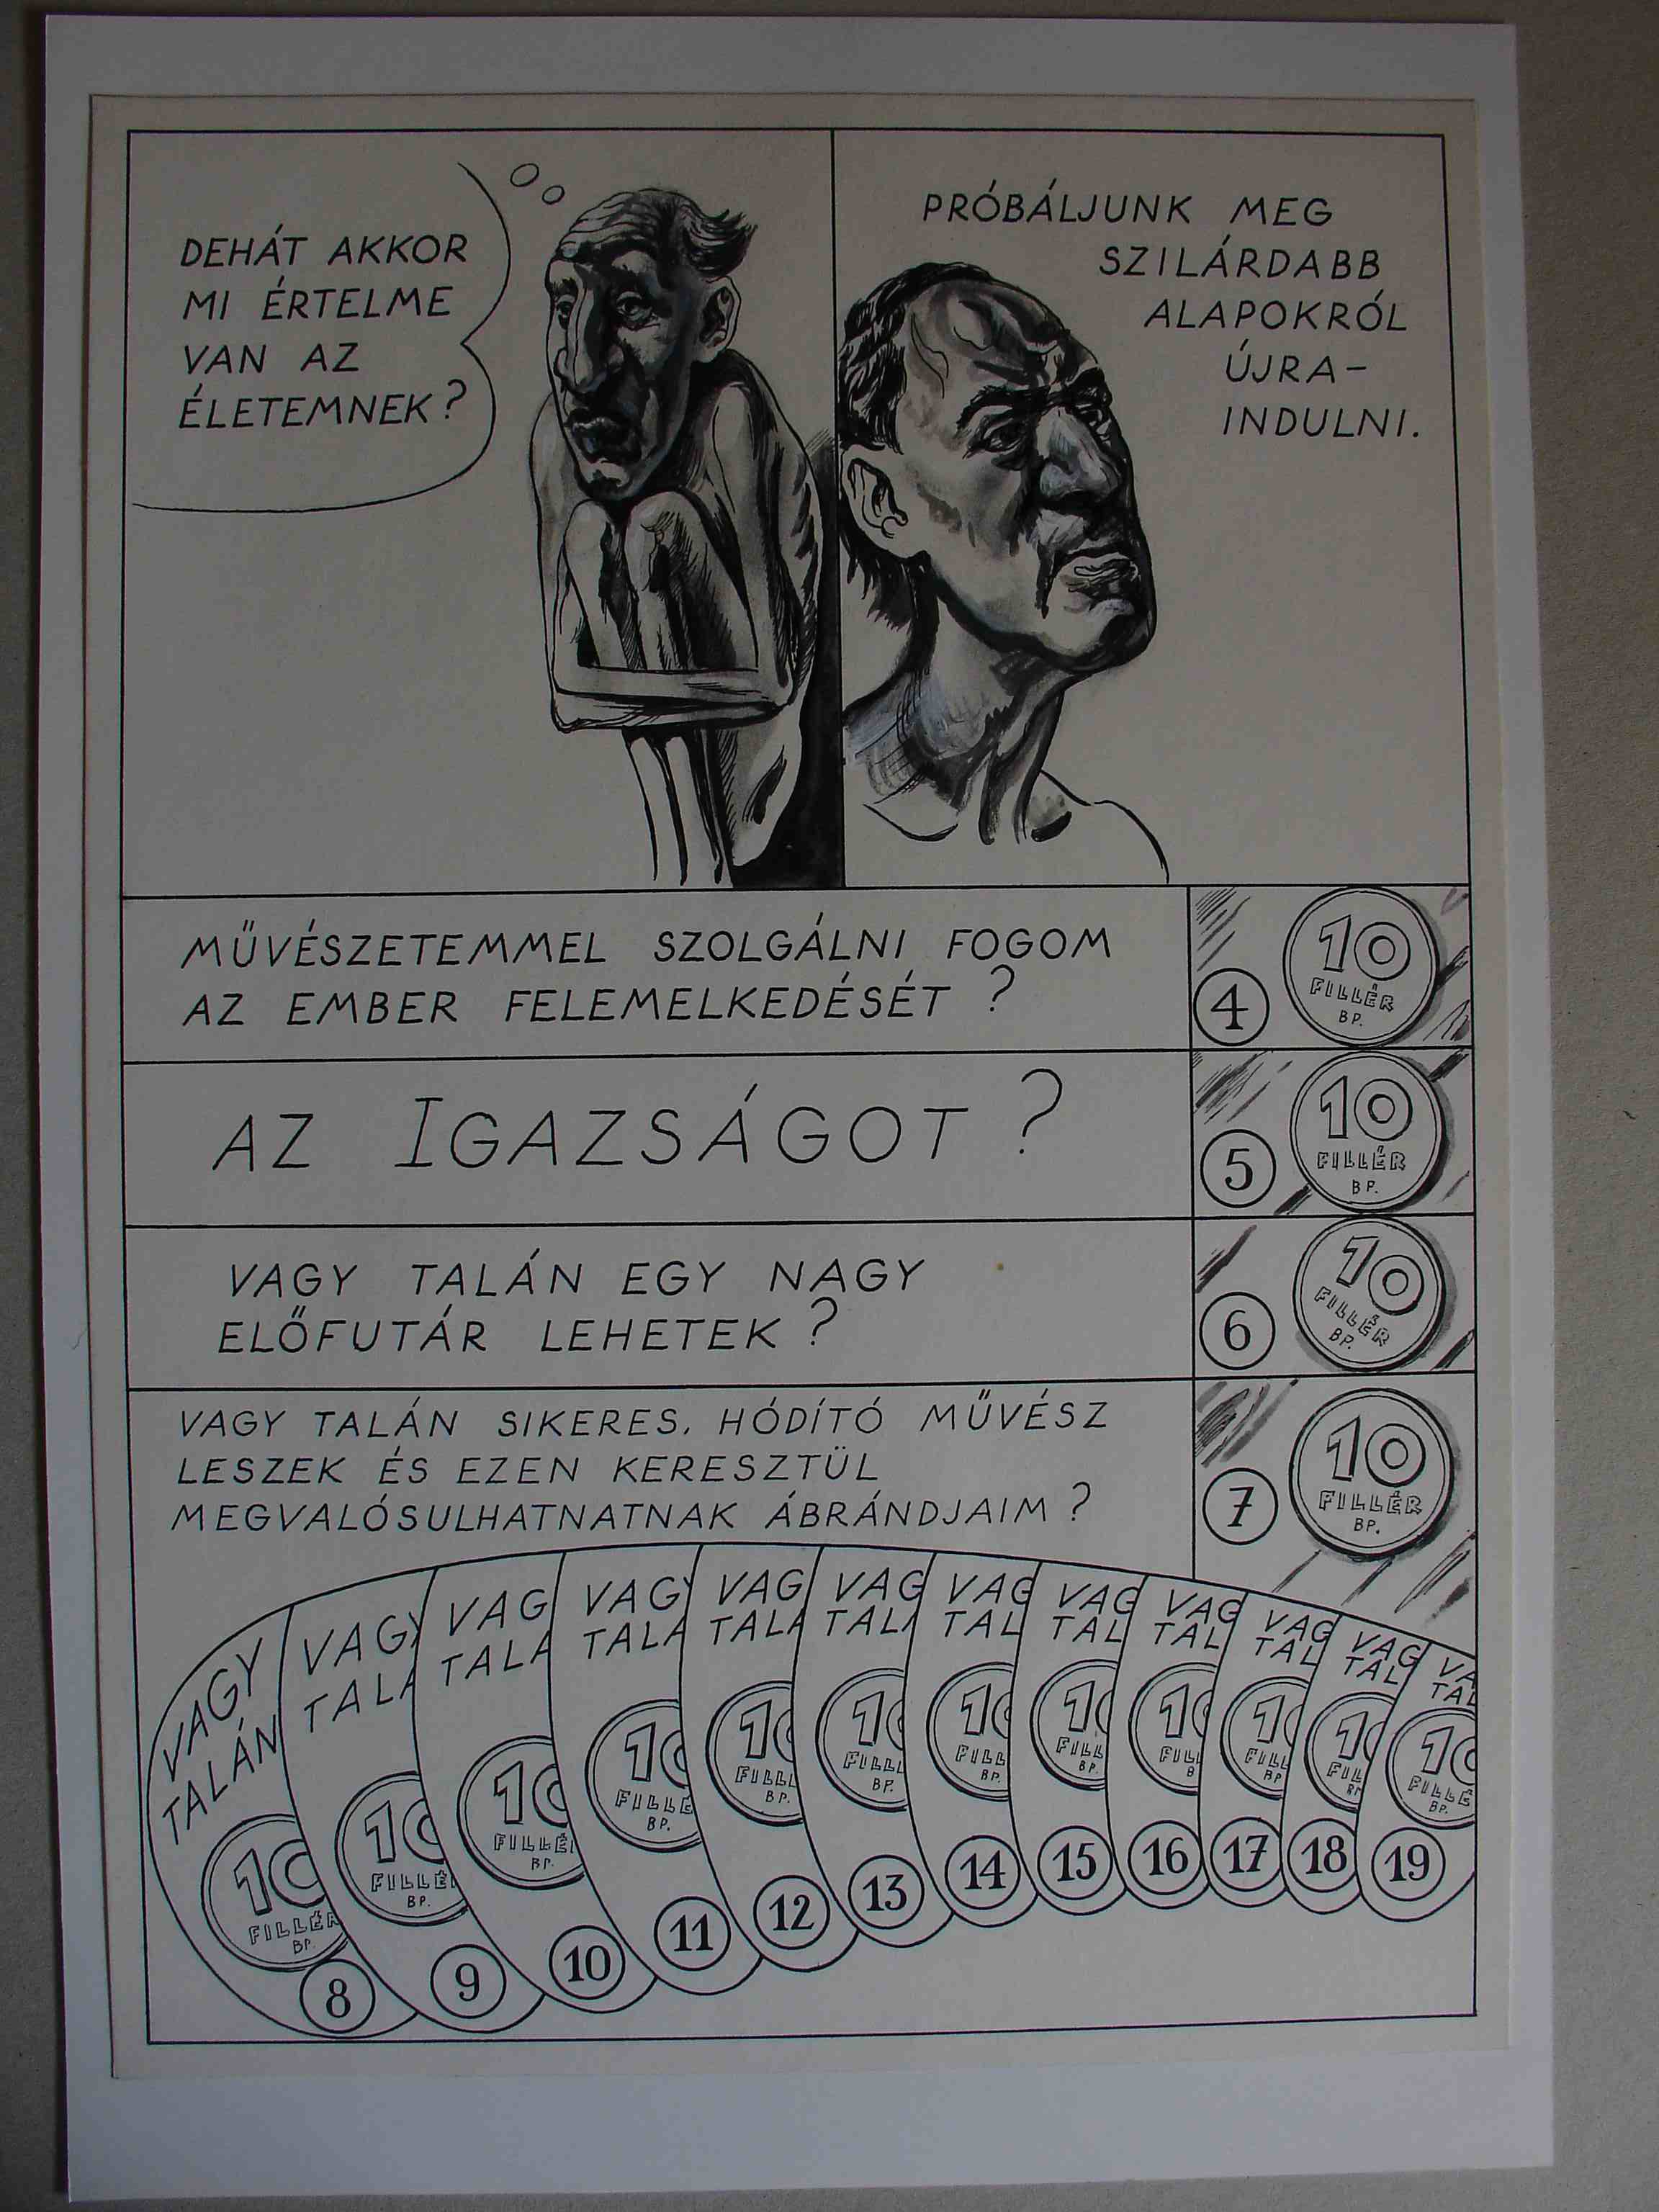 DEHÁT AKKOR
MI ÉRTELME
VAN AZ
ÉLETEMNEK?
PRÓBÁLJUNK MEG
SZILÁRDABB
ALAPOKRÓL
ÚJRA-
INDULNI.
MŰVÉSZETEMMEL SZOLGÁLNI FOGOM
AZ EMBER FELEMELKEDÉSÉT?
4
10
FILLÉR
BP.
AZ IGAZSÁGOT?
5
10
FILLÉR
BP.
VAGY TALÁN EGY NAGY
ELŐFUTÁR LEHETEK?
6
10
FILLÉR
BP.
VAGY TALÁN SIKERES, HÓDÍTÓ MŰVÉSZ
LESZEK ÉS EZEN KERESZTÜL
MEGVALÓSULHATNATNAK ÁBRÁNDJAIM?
7
10
FILLÉR
BP.
VAGY
TALÁN
10
FILLÉR
BP.
8
VAGY
TALA
10
FILLÉ
BP.
9
VAG
TALA
10
FILLÉ
BP.
10
VAGY
TALA
10
FILLÉ
BP.
11
VAG
TALA
10
FILLL
BP.
12
VAG
TALA
10
FILLL
BP.
13
VAG
TAL
10
FILL
BP.
14
VAG
TAL
10
FILL
BP.
15
VAG
TAL
10
FILL
B
16
VAG
TAL
10
FILL
BP
17
VAG
TAL
10
FIL
BP
18
VA
TAL
10
FILLÉ
BP.
19